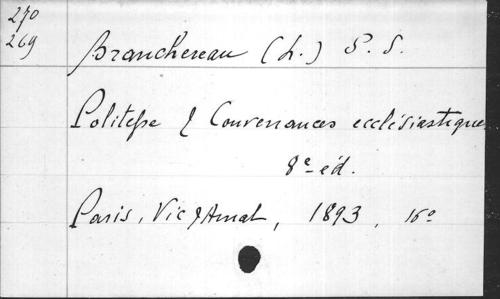 270
269
Branchereau (L.) S. S.
Politesse & Convenances ecclésiastiques
8e éd.
Paris, Vic & Amat, 1893, 16o